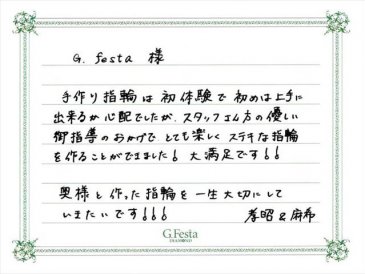 G. festa 様
手作り指輪は初体験で初めは上手に
出来るか心配でしたが、スタッフさん方の優しい
御指導のおかげで、とても楽しくステキな指輪
を作ることができました！大満足です！！
奥様と作った指輪を一生大切にして
いきたいです！！！ 孝昭 & 麻希
G.Festa
DIAMOND